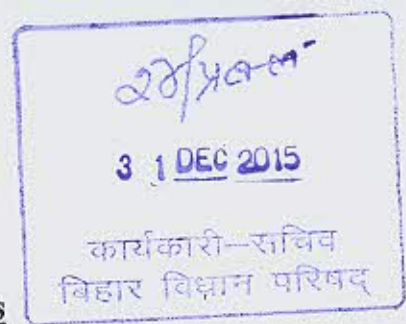 3 1 DEC 2015
कार्यकारी-सचिव
बिहार विधान परिषद्
S